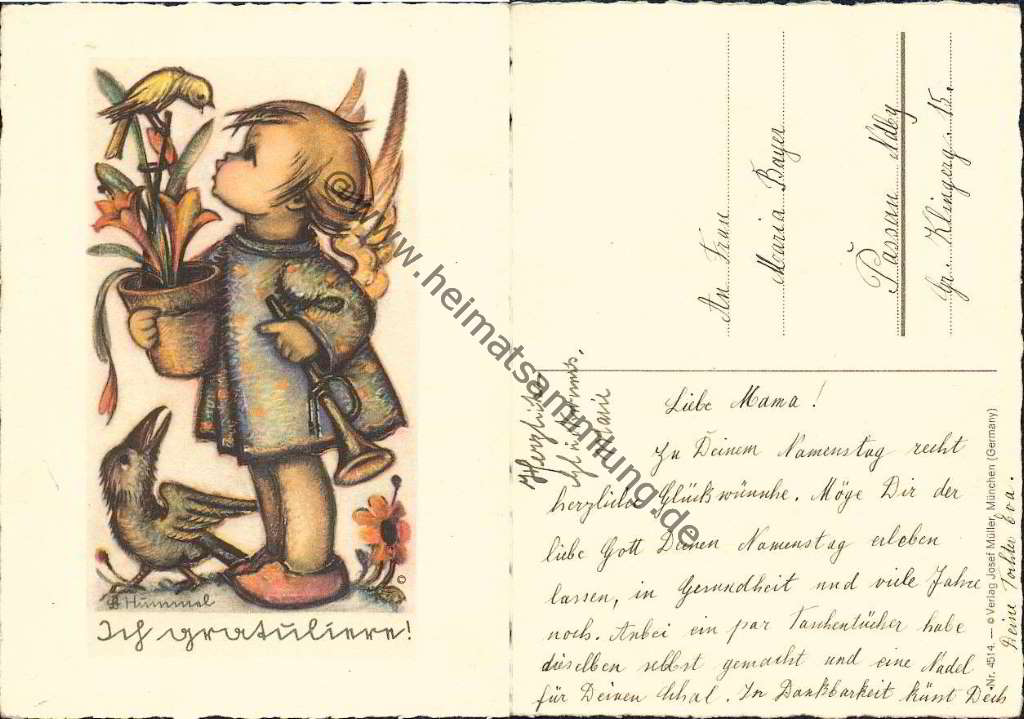 B Hummel
Ich gratuliere!
© www.heimatsammlung.de
An Frau
Maria Bayer
Passau Ndby
Gr. Klingerg. 15.
Liebe Mama!
Zu Deinem Namenstag recht
herzliche Glückwünnhe. Möge Dir der
liebe Gott Deinen Namenstag erleben
lassen, in Gesundheit und viele Jahre
noch. Anbei ein par Taschentücher habe
dieselben selbst gemacht und eine Nadel
für Deinen Schal. In Dankbarkeit küsst Dich
Deine Tochter Eva.
Herzliche
Nr. 4514. — © Verlag Josef Müller, München (Germany)